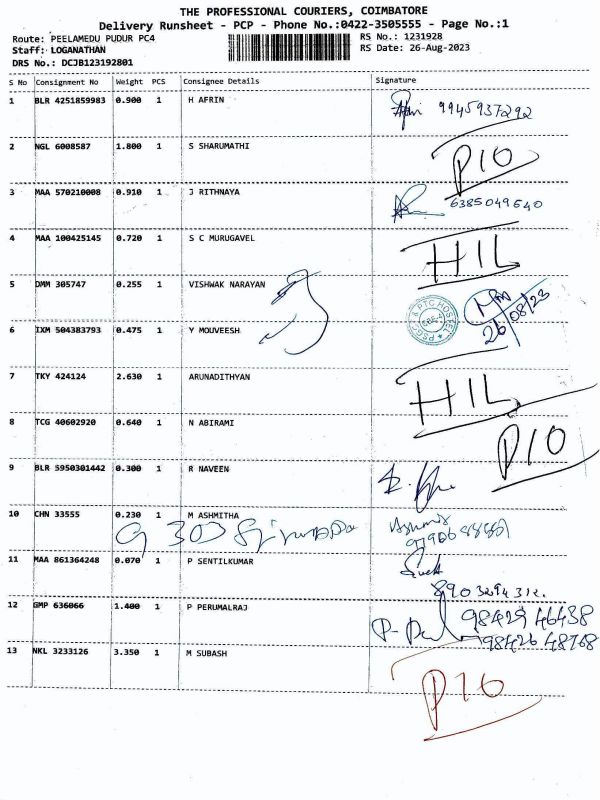 THE PROFESSIONAL COURIERS, COIMBATORE
Delivery Runsheet - PCP - Phone No.:0422-3505555 - Page No.:1
Route: PEELAMEDU PUDUR PC4 RS No.: 1231928
Staff: LOGANATHAN RS Date: 26-Aug-2023
DRS No.: DCJB123192801
S No Consignment No Weight PCS Consignee Details Signature
1 BLR 4251859983 0.900 1 H AFRIN 9945937292
2 NGL 6008587 1.800 1 S SHARUMATHI P10
3 MAA 570210008 0.910 1 J RITHNAYA 6385049640
4 MAA 100425145 0.720 1 S C MURUGAVEL HIL
5 DMM 305747 0.255 1 VISHWAK NARAYAN
6 IXM 504383793 0.475 1 Y MOUVEESH 26/08/23
7 TKY 424124 2.630 1 ARUNADITHYAN HIL
8 TCG 40602920 0.640 1 N ABIRAMI P10
9 BLR 5950301442 0.300 1 R NAVEEN
10 CHN 33555 0.230 1 M ASHMITHA
G 303
11 MAA 861364248 0.070 1 P SENTILKUMAR
8903294312.
12 GMP 636066 1.400 1 P PERUMALRAJ 98429 46438
98426 48768
13 NKL 3233126 3.350 1 M SUBASH P10